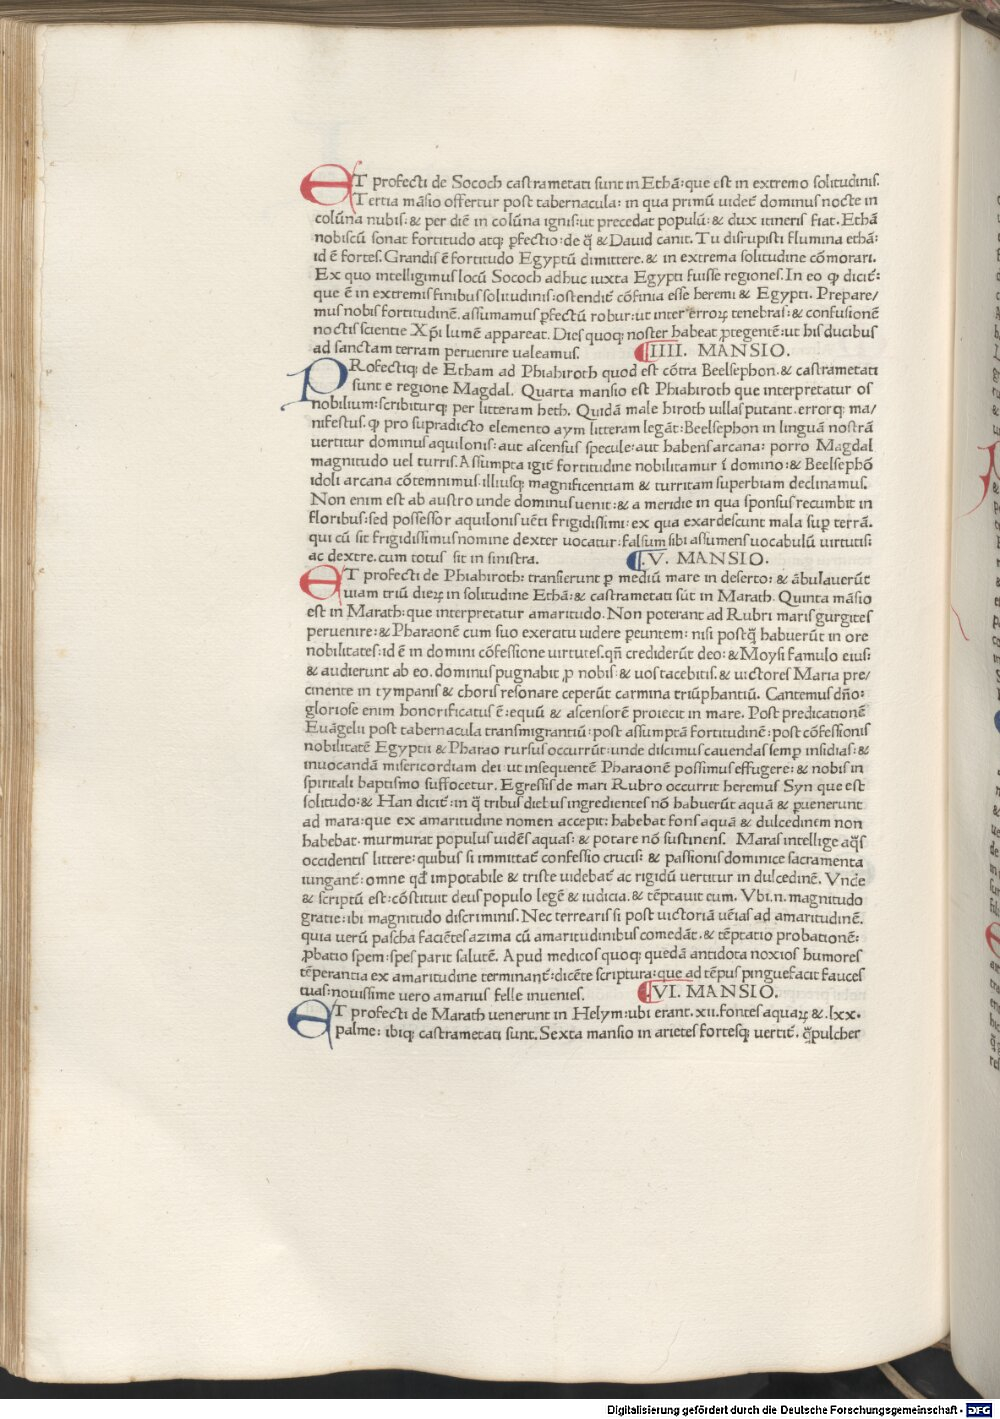 ET profecti de Sococh castrametati sunt in Ethā: que est in extremo solitudinis.
Tertia māsio offertur post tabernacula: in qua primū uidet᷑ dominus nocte in
colūna nubis: & per diē in colūna ignis: ut precedat populū: & dux itineris fiat. Ethā
nobiscū sonat fortitudo atqꝫ ꝑfectio: de q̄ & Dauid canit. Tu disrupisti flumina ethā:
id ē fortes. Grandis ē fortitudo Egyptū dimittere. & in extrema solitudine cōmorari.
Ex quo intelligimus locū Sococh adhuc iuxta Egypti fuisse regiones. In eo ꝙ dicit᷑:
que ē in extremis finibus solitudinis: ostendit᷑ cōfinia esse heremi & Egypti. Prepare/
mus nobis fortitudinē. assumamus ꝑfectū robur: ut inter erroꝝ tenebras: & confusionē
noctis scientie Xp̄i lumē appareat. Dies quoqꝫ noster habeat ꝑtegentē: ut his ducibus
ad sanctam terram peruenire ualeamus. ¶IIII. MANSIO.
PRofectiqꝫ de Etham ad Phiahiroth quod est cōtra Beelsephon. & castrametati
sunt e regione Magdal. Quarta mansio est Phiahiroth que interpretatur os
nobilium: scribiturqꝫ per litteram heth. Quidā male hiroth uillas putant. errorqꝫ ma/
nifestus. ꝙ pro supradicto elemento aym litteram legāt: Beelsephon in linguā nostrā
uertitur dominus aquilonis: aut ascensus specule: aut habens arcana: porro Magdal
magnitudo uel turris. Assumpta igit᷑ fortitudine nobilitamur ī domino: & Beelsephō
idoli arcana cōtemnimus. illiusqꝫ magnificentiam & turritam superbiam declinamus.
Non enim est ab austro unde dominus uenit: & a meridie in qua sponsus recumbit in
floribus: sed possessor aquilonis uēti frigidissimi: ex qua exardescunt mala suꝑ terrā.
qui cū sit frigidissimus nomine dexter uocatur: falsum sibi assumens uocabulū uirtutis:
ac dextre. cum totus sit in sinistra. ¶.V. MANSIO.
ET profecti de Phiahiroth: transierunt ꝑ mediū mare in deserto: & ābulauerūt
uiam triū dieꝝ in solitudine Ethā: & castrametati sūt in Marath. Quinta māsio
est in Marath: que interpretatur amaritudo. Non poterant ad Rubri maris gurgites
peruenire: & Pharaonē cum suo exercitu uidere ꝑeuntem: nisi postq̄ habuerūt in ore
nobilitates: id ē in domini cōfessione uirtutes. qn̄ crediderūt deo: & Moysi famulo eius:
& audierunt ab eo. dominus pugnabit ꝓ nobis: & uos tacebitis. & uictores Maria pre/
cinente in tympanis & choris resonare ceperūt carmina triūphantiū. Cantemus dn̄o:
gloriose enim honorificatus ē: equū & ascensorē proiecit in mare. Post predicationē
Euāgelii post tabernacula transmigrantiū: post assumptā fortitudinē: post cōfessionis
nobilitatē Egyptii & Pharao rursus occurrūt: unde discimus cauendas semꝑ insidias: &
inuocandā misericordiam dei: ut insequentē Pharaonē possimus effugere: & nobis in
spiritali baptismo suffocetur. Egressis de mari Rubro occurrit heremus Syn que est
solitudo: & Han dicit᷑: in q̄ tribus diebus ingredientes nō habuerūt aquā & ꝑuenerunt
ad mara: que ex amaritudine nomen accepit: habebat fons aquā & dulcedinem non
habebat. murmurat populus uidēs aquas: & potare nō sustinens. Maras intellige aq̄s
occidentis littere: quibus si immittat᷑ confessio crucis: & passionis dominice sacramenta
iungant᷑: omne qd̄ impotabile & triste uidebat᷑ ac rigidū uertitur in dulcedinē. Vnde
& scriptū est: cōstituit deus populo legē & iudicia. & tēptauit eum. Vbi .n. magnitudo
gratie: ibi magnitudo discriminis. Nec terrearis si post uictoriā uēias ad amaritudinē.
quia uerū pascha faciētes azima cū amaritudinibus comedāt. & tēptatio probationē:
ꝓbatio spem: spes parit salutē. Apud medicos quoqꝫ quedā antidota noxios humores
tēperantia ex amaritudine terminant᷑: dicēte scriptura: que ad tēpus pinguefacit fauces
tuas: nouissime uero amarius felle inuenies. ¶.VI. MANSIO.
ET profecti de Marath uenerunt in Helym: ubi erant .xii. fontes aquaꝝ & .lxx.
palme: ibiqꝫ castrametati sunt. Sexta mansio in arietes fortesqꝫ uertit᷑. q̄pulcher
Digitalisierung gefördert durch die Deutsche Forschungsgemeinschaft - DFG